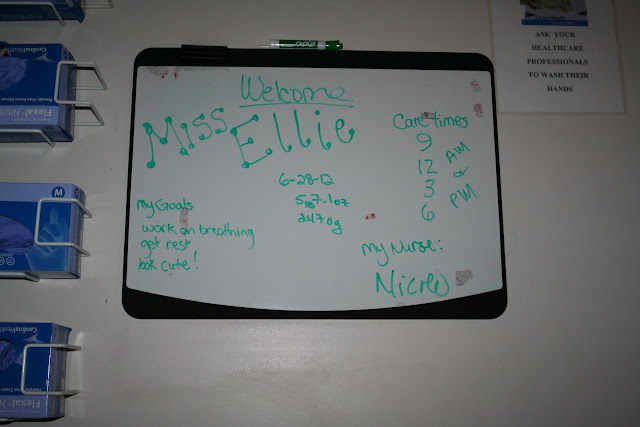 Welcome
Miss Ellie
6-28-12
5 lb 7.1oz
2470g
my Goals
work on breathing
get rest
look cute!
Care times
9
12
3
6
AM
or
PM
my Nurse:
EXPO
ASK YOUR
HEALTHCARE
PROFESSIONALS
TO WASH THEIR
HANDS
CardinalHealth
Flexal Nitrile
M
CardinalHealth
Flexal